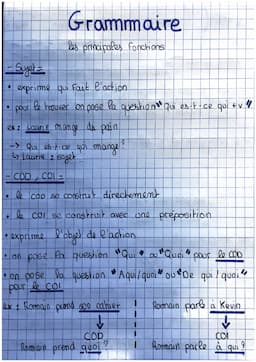 Grammaire
les principales fonctions
- Sujet =
• exprime qui fait l'action
• pour le trouver on pose la question "Qui es-t-ce qui + v"
ex : Laurie mange du pain
→ Qui es-t-ce qui mange ?
↳ Laurie : sujet
- COD, COI =
• le COD se construit directement
• le COI se construit avec une préposition
• exprime l'objet de l'action
• on pose la question "Qui" ou "Quoi" pour le COD
• on pose la question "A qui/quoi" ou "De qui/quoi"
pour le COI
ex : Romain prend son cahier Romain parle à Kevin
COD COI
Romain prend quoi ? Romain parle à qui ?